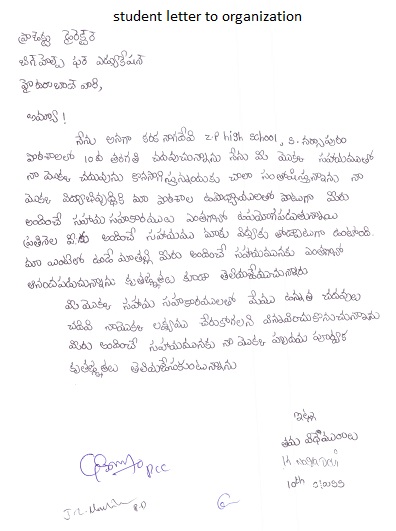 student letter to organization
ప్రాజెక్టు డైరెక్టర్
బిగ్ హెల్ప్ ఫర్ ఎడ్యుకేషన్
హైదరాబాద్ వారి,
అయ్యా!
నేను అనగా కరక నాగదేవి z.P high school, S. నర్సాపురం
పాఠశాలలో 10వ తరగతి చదువుచున్నాను నేను మీ యొక్క సహాయముతో
నా యొక్క చదువును కొనసాగిస్తున్నందుకు చాలా సంతోషిస్తున్నాను నా
యొక్క విద్యాభివృద్ధికి మా పాఠశాల ఉపాధ్యాయులతో పాటుగా మీరు
అందించే సహాయ సహకారములు ఎంతగానో ఉపయోగపడుతున్నాయి
ప్రతినెల మీరు అందించే సహాయము మాకు విద్యకు తోడ్పాటుగా ఉంటోంది.
మా ఇంటిలో ఉండే మాతల్లి మీరు అందించే సహాయమునకు ఎంతగానో
ఆనందపడుచున్నారు కృతజ్ఞతలు కూడా తెలియజేయుచున్నారు
మీ యొక్క సహాయ సహకారములతో మేము ఉన్నత చదువులు
చదివి నాయొక్క లక్ష్యము చేరుకోగలనని విన్నవించుకొనుచున్నాను
మీరు అందించే సహాయమునకు నా యొక్క హృదయ పూర్వక
కృతజ్ఞతలు తెలియజేసుకుంటున్నాను
ఇట్లు
తమ విధేయురాలు
K NagaDevi
10th class
PCC
P.D